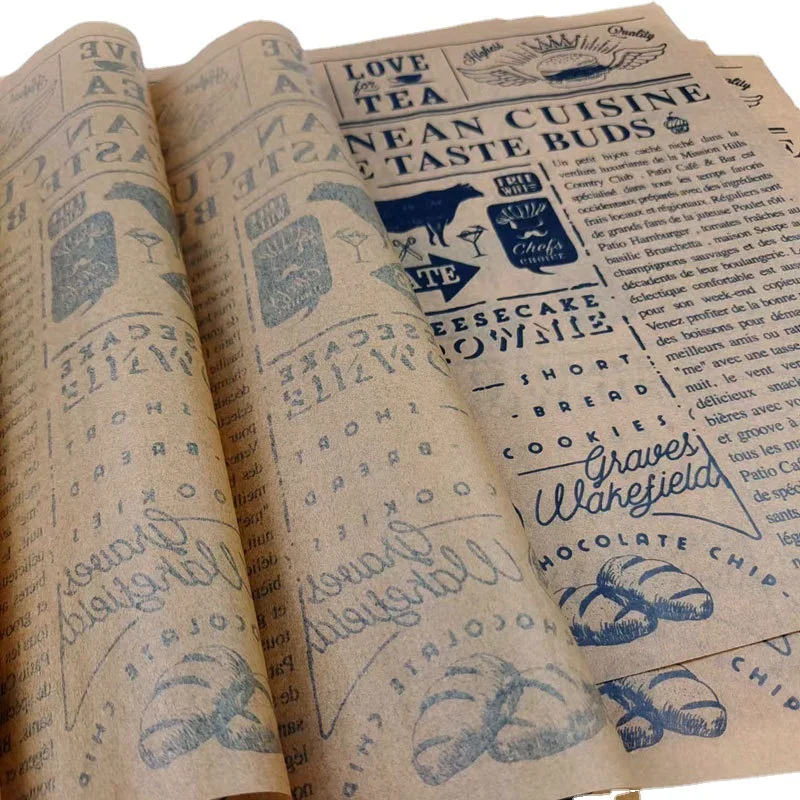 LOVE
for
TEA
Highest
Quality
NEAN CUISINE
E TASTE BUDS
FREE
WIFI
Chefs
CHOICE
ATE
EESECAKE
OWNIE
SHORT
BREAD
COOKIES
Graves
Wakefield
HOCOLATE CHIP
Un petit bijou caché niché dans la
verdure luxuriante de la Mission Hills
Country Club , Patio Café & Bar est
spécialisé dans tous les temps favoris
occidentaux préparés avec des ingrédients
frais locaux et régionaux. Réguliers sont
de grands fans de la juteuse Poulet rôti ,
Patio Hamburger , tomates fraîches au
basilic Bruschetta , maison Soupe au
champignons sauvages et des dess
décadents de leur boulangerie. L
éclectique confortable est aus
pour son week-end copieu
Venez profiter de la bonne
des boissons pour déma
meilleurs amis ou rat
"me" avec une tasse
nuit, le vent ver
délicieux snack
bières avec vo
et groove à
tous les mo
Patio Caf
de spéc
sants
lég
nou
CHIP